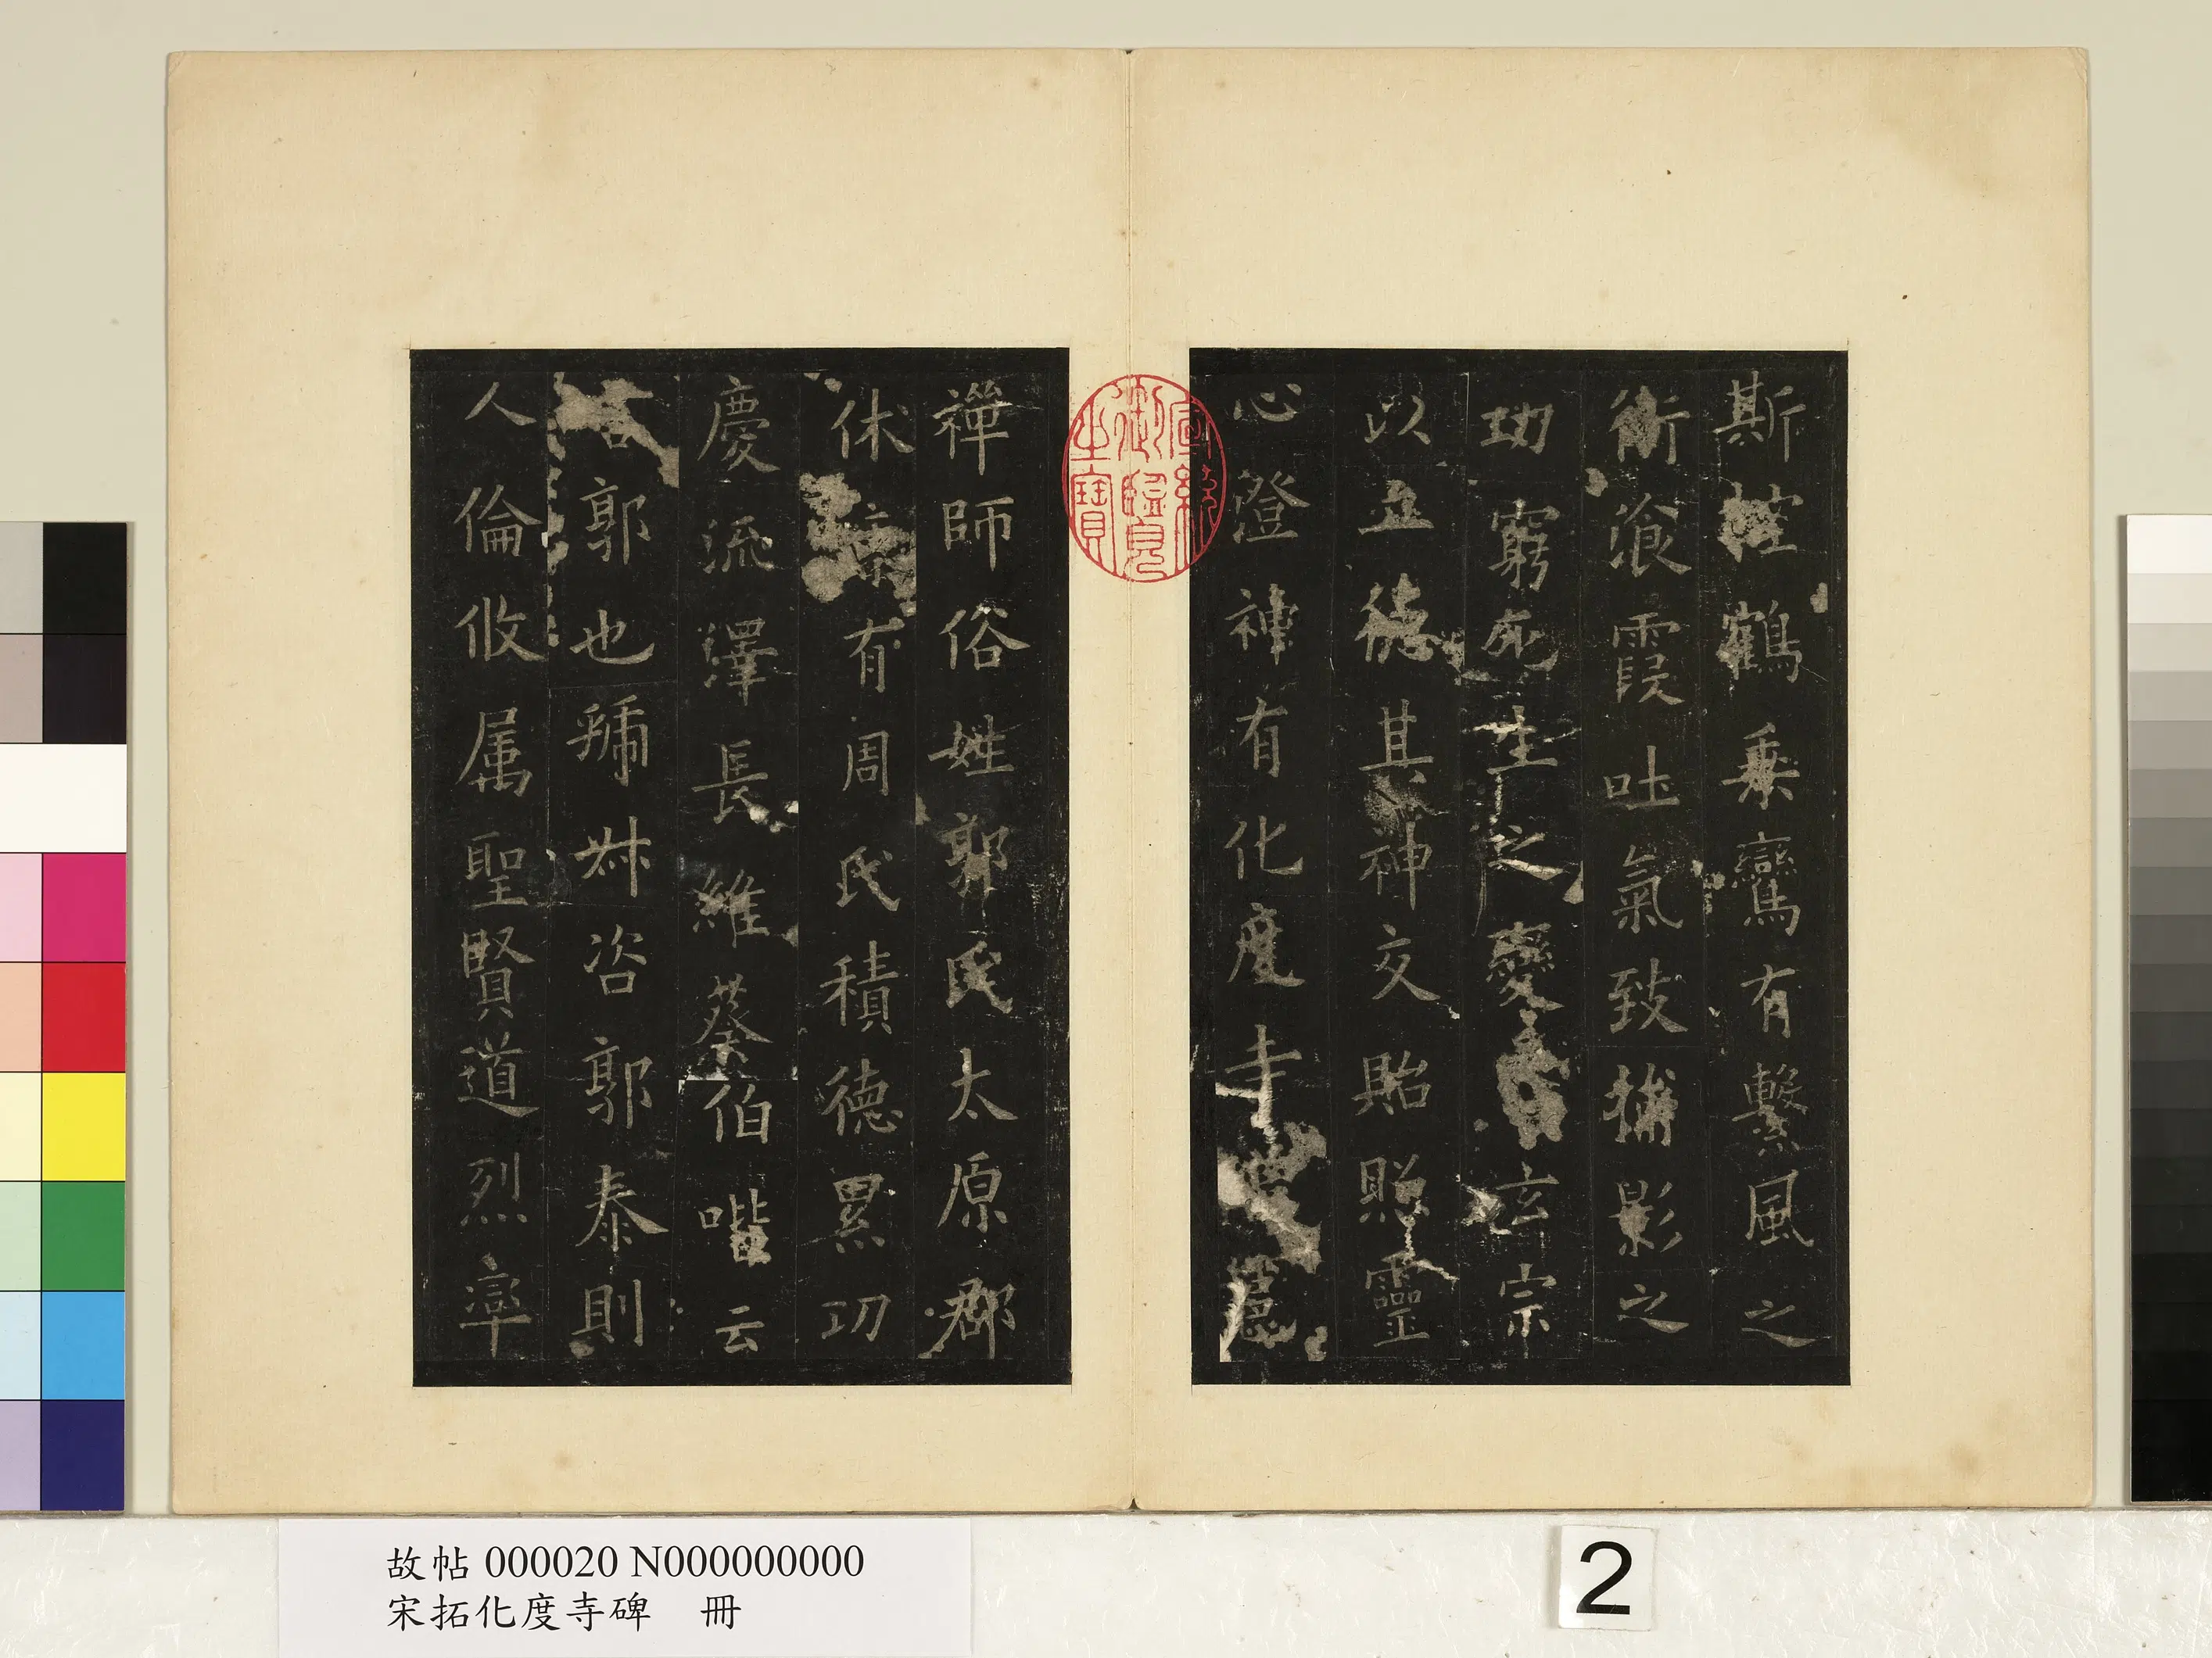 斯控鶴乘鸞有繫風之
術飡霞吐氣致捕影之
功窮死生之變玄宗
以立德其神交貽靈
心澄神有化度寺
宣統御覽之寶
禪師俗姓郭氏太原郡
休有周氏積德累功
慶流澤長維蔡伯喈云
郭也虢叔咨郭泰則
人倫攸属聖賢道烈率
故帖 000020 N000000000
宋拓化度寺碑 冊
2